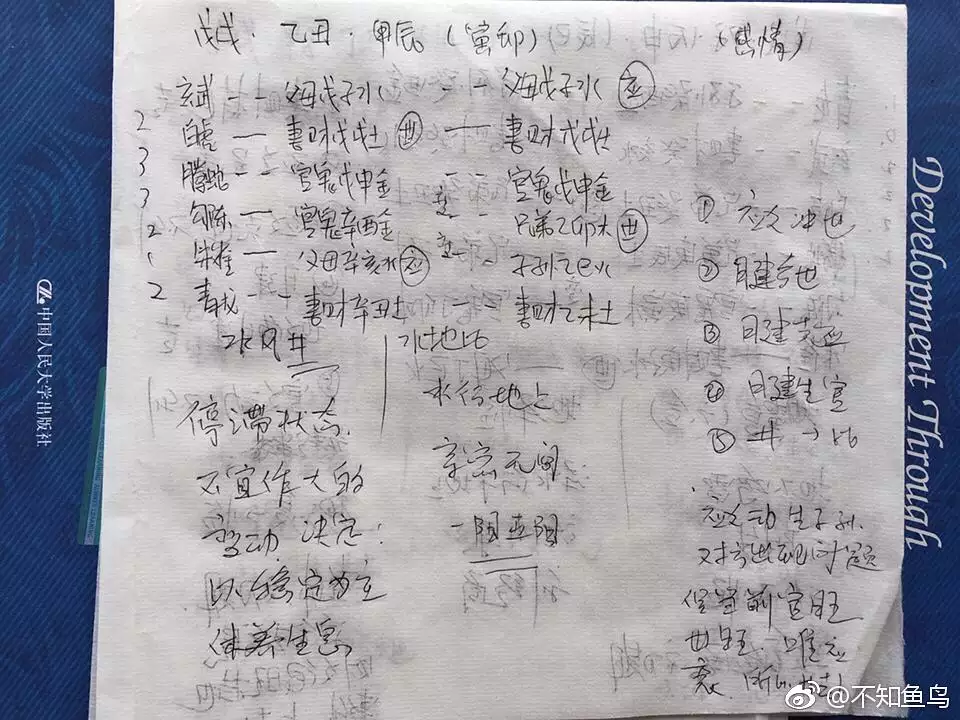 戊戌·乙丑·甲辰(寅卯) (感情)
玄武 -- 父母戊子水 -- 父母戊子水 应
2 白虎 — 妻财戊戌土 世 — 妻财戊戌土
3 腾蛇 -- 官鬼戊申金 -- 官鬼戊申金
3 勾陈 — 官鬼辛酉金 -- 兄弟乙卯木 世
2 朱雀 — 父母辛亥水 应 -- 子孙乙巳火
2 青龙 -- 妻财辛丑土 -- 妻财乙未土
水风井
水地比
停滞状态.
不宜作大的
变动 决定:
以稳定为主
休养生息
水行地上
亲密无间
① 应爻冲世
② 日建合世
③ 月建克应
④ 日建生官
⑤ 井→比
应爻动生子孙.
对方出现问题
官旺
世旺. 唯应
衰.
Development Through
中国人民大学出版社
@不知鱼鸟